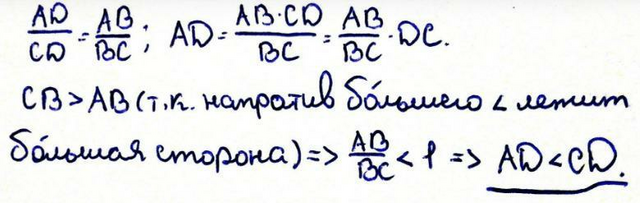 AD/CD = AB/BC; AD = AB·CD/BC = AB/BC · DC.
CB > AB (т.к. напротив бо́льшего ∠ лежит
бо́льшая сторона) => AB/BC < 1 => AD < CD.